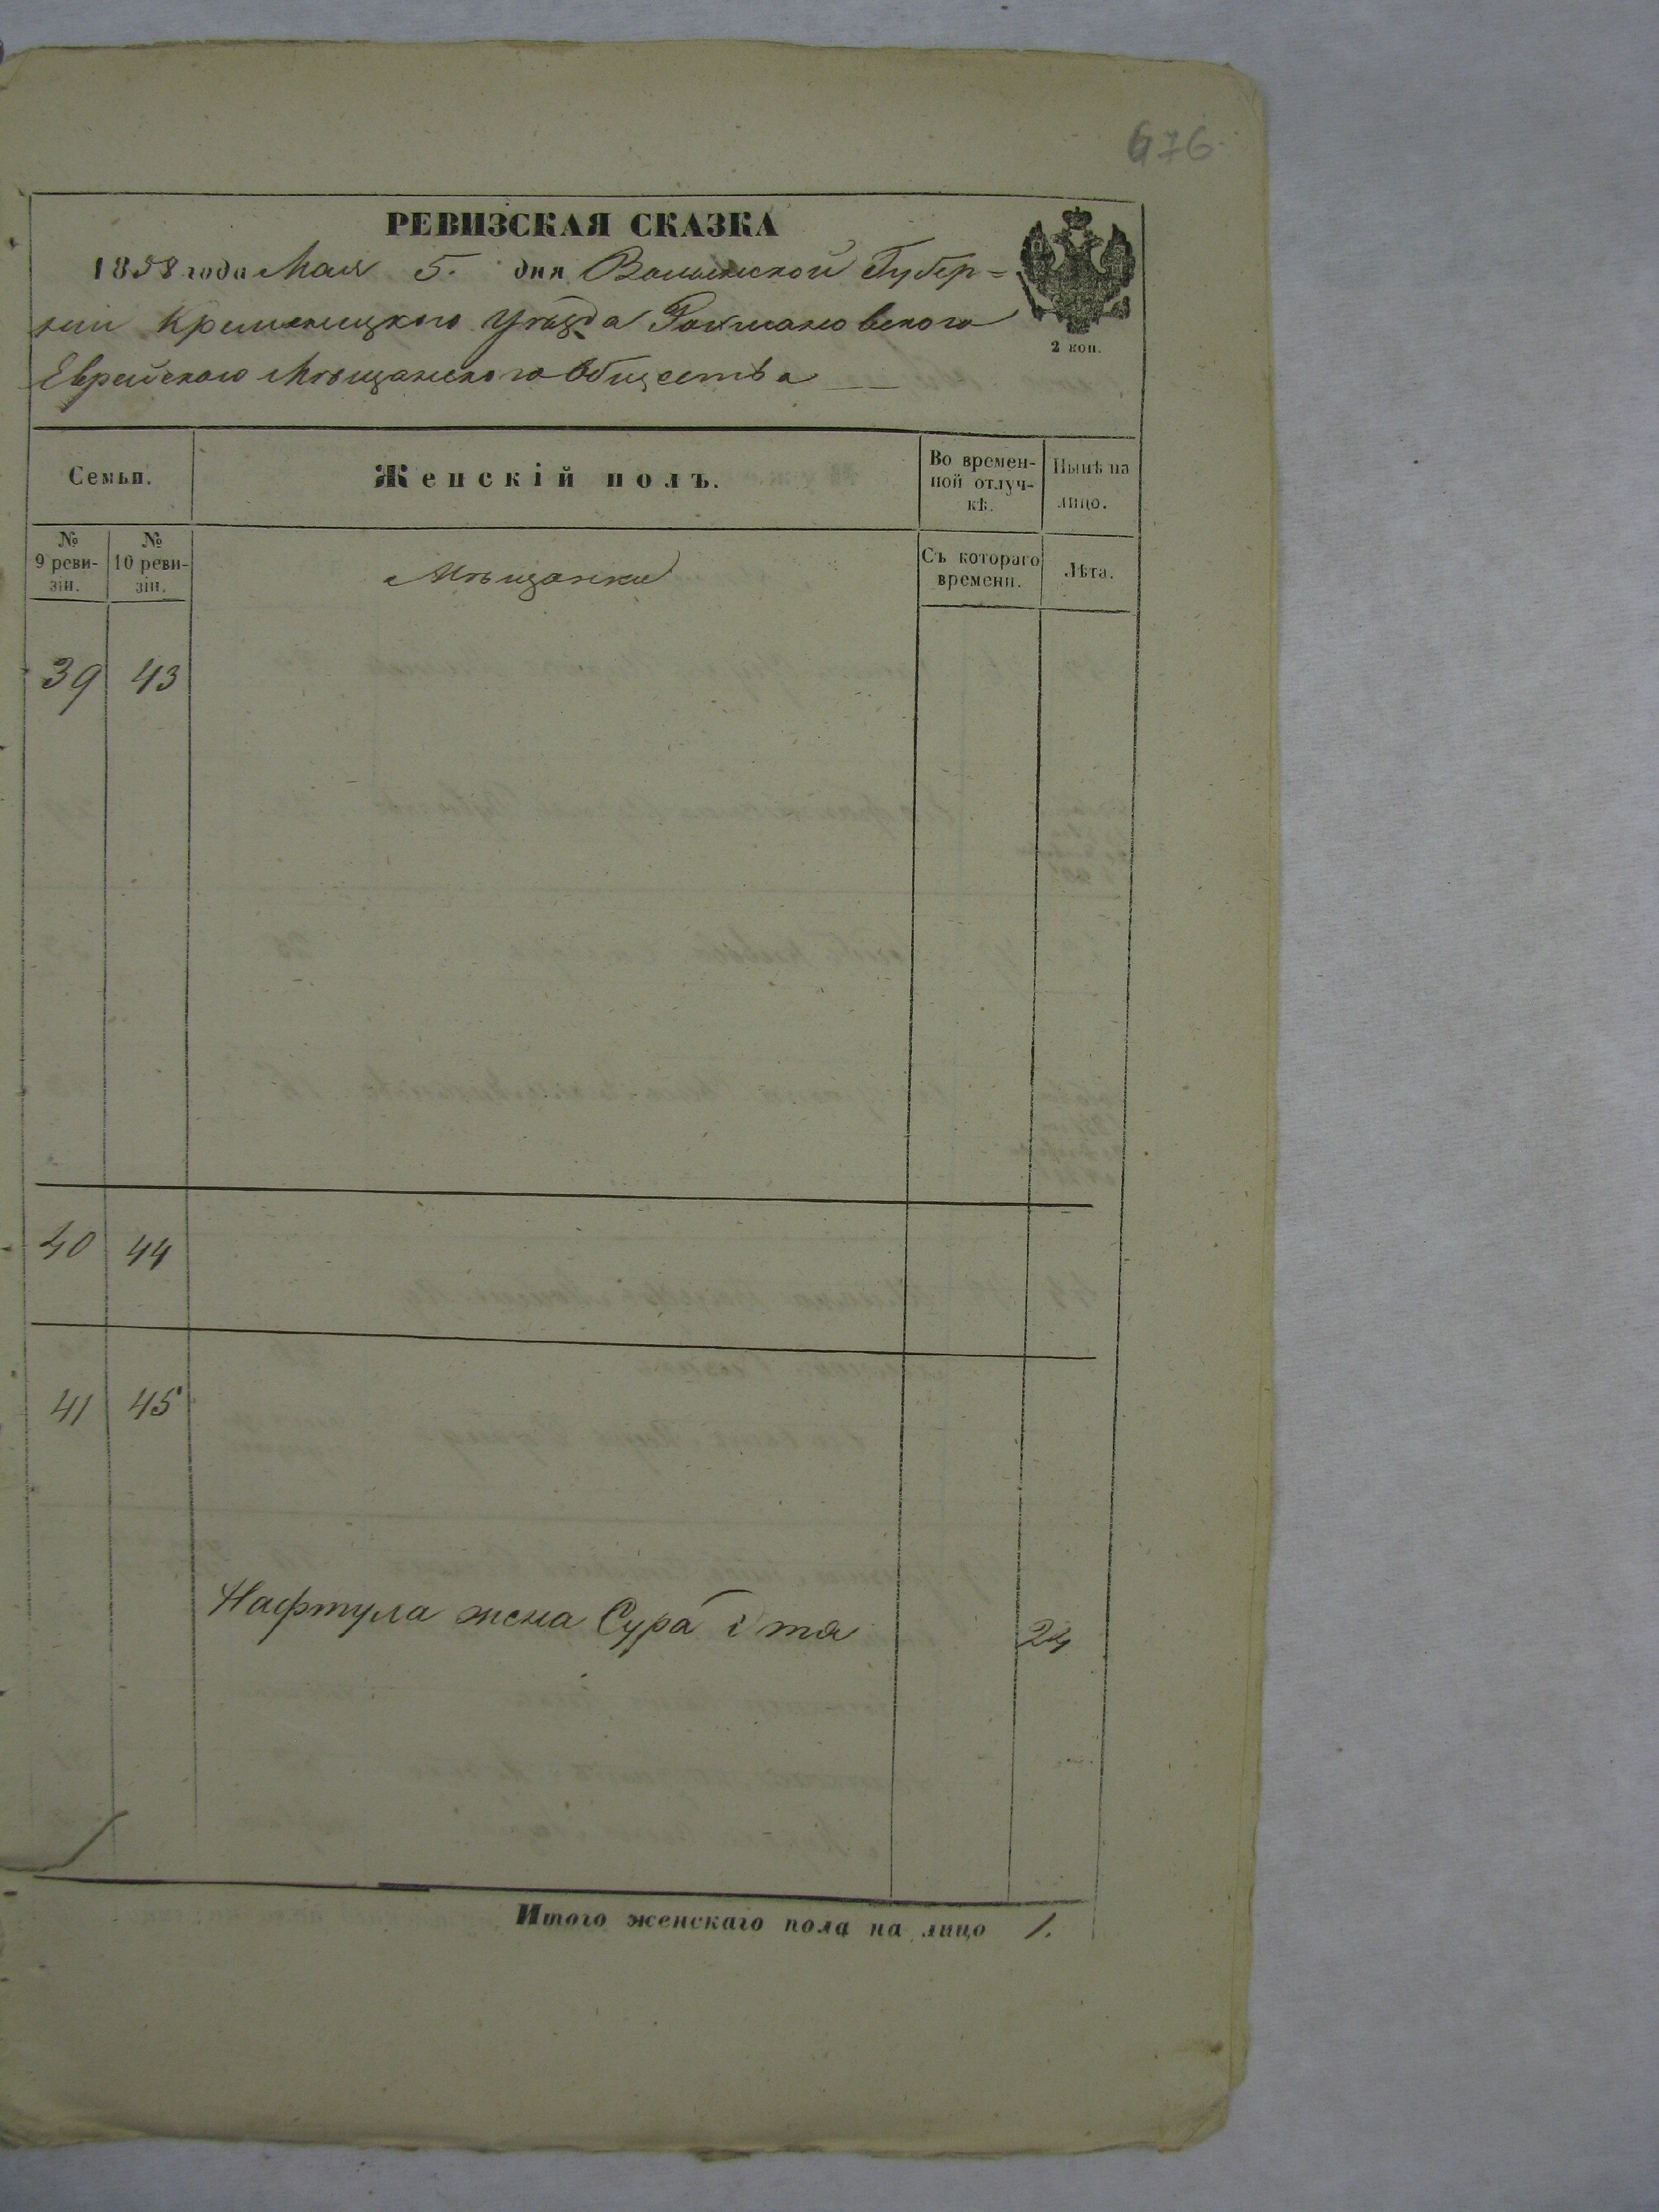 676
РЕВИЗСКАЯ СКАЗКА
1858 года Мая 5. дня Волынской Губер=
нии Кременецкого Уѣзда Рахмановского
Еврейского Мѣщанского Общества
2 коп.
Семьи.
Женскій полъ.
Во времен-
ной отлуч-
кѣ.
Нынѣ на
лицо.
№
9 реви-
зіи.
№
10 реви-
зіи.
Мѣщанки
Съ котораго
времени.
Лѣта.
39 43
40 44
41 45
Нафтула жена Сура Ітя 24
Итого женскаго пола на лицо 1.